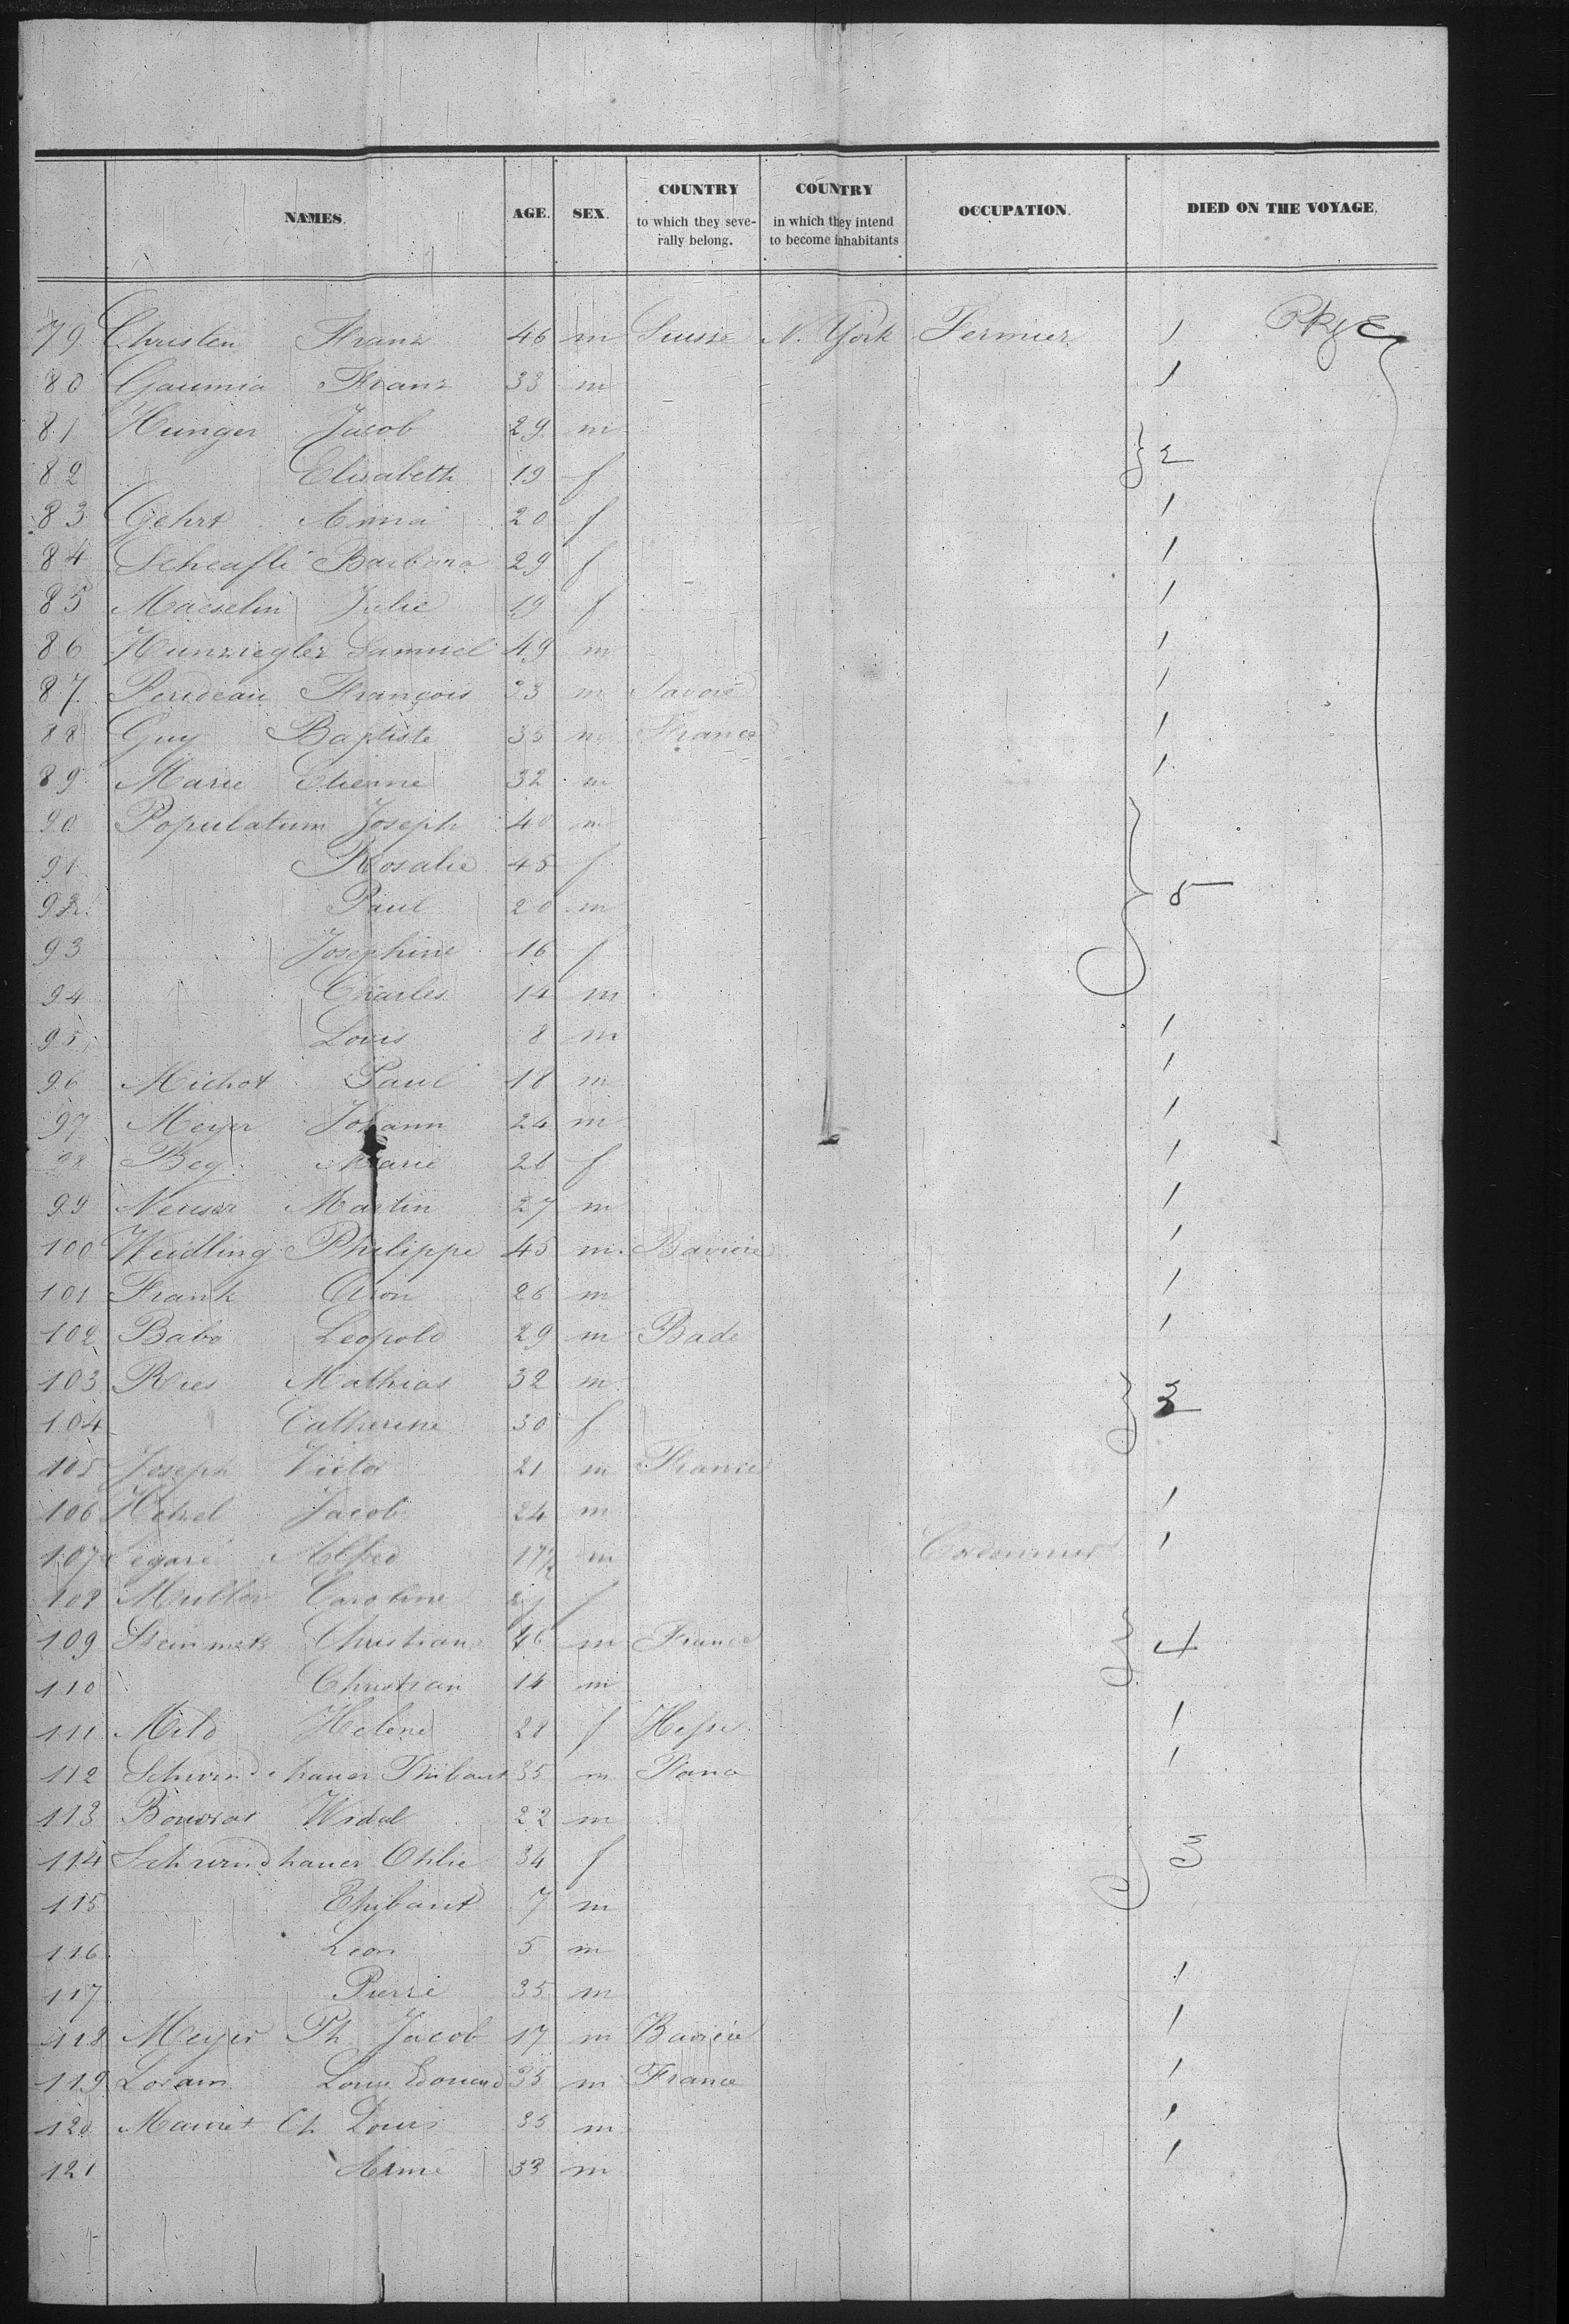 NAMES. AGE. SEX. COUNTRY to which they seve- rally belong. COUNTRY in which they intend to become inhabitants OCCUPATION. DIED ON THE VOYAGE.
79 Christen Franz 46 m Suisse N. York Fermier 1
80 Gaumia Franz 33 m 1
81 Hunger Jacob 29 m
82 Elisabeth 19 f 2
83 Gehrt Anna 20 f 1
84 Scheafli Barbara 29 f 1
85 Maeselin Julie 19 f 1
86 Hunziegler Samuel 49 m 1
87 Perideau François 33 m Savoie 1
88 Guy Baptiste 35 m France 1
89 Marie Etienne 32 m 1
90 Populatum Joseph 40 m
91 Rosalie 45 f
92 Paul 20 m 5
93 Josephine 16 f
94 Charles 14 m
95 Louis 8 m 1
96 Michot Paul 18 m 1
97 Meyer Johann 24 m 1
98 Bey Marie 28 f 1
99 Martin 27 m 1
100 Weidling Philippe 45 m Baviere 1
101 Frank Aron 26 m 1
102 Babo Leopold 29 m Bade 1
103 Ries Mathias 32 m
104 Catherine 30 f
105 Joseph Victor 21 m France
106 Hetzel Jacob 24 m 1
107 Legaré Alfred 17 1/2 m Cordonnier 1
108 Muller Caroline f
109 Steinmetz Christian 46 m France 4
110 Christian 14 m
111 Milo Helene 28 f Hesse 1
112 Schwindenhauer Thibaut 35 m France 1
113 Widal 22 m
114 Schwindhauer Otilie 34 f 3
115 Thibaut 7 m
116 Leon 5 m
117 Pierre 35 m 1
118 Meyer Ph Jacob 17 m Baviere 1
119 Lorain Louis Edouard 35 m France 1
120 Mauret Ch Louis 35 m 1
121 Aimé 33 m 1